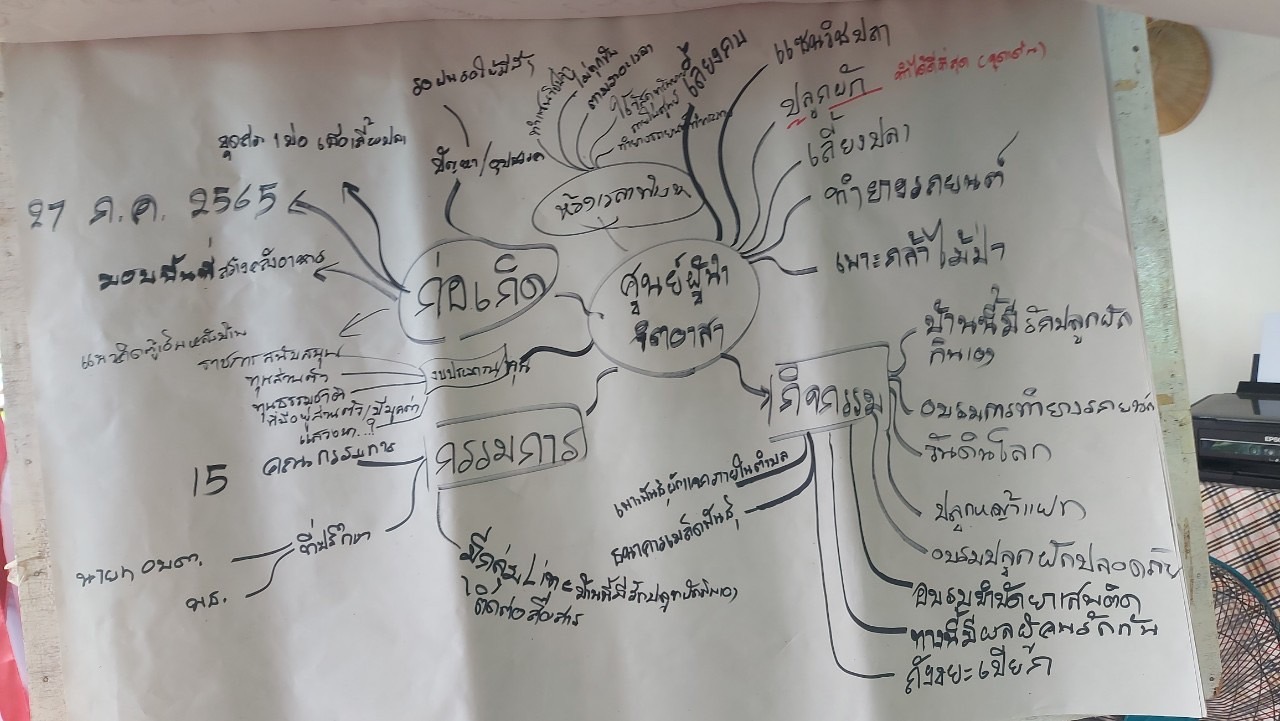 รอฝนรอให้มีน้ำ
ขุดสระ 1 บ่อ เพื่อเลี้ยงปลา
ปัญหา/อุปสรรค
27 ก.ค. 2565
มอบพื้นที่สร้างคลังอาหาร
ก่อเกิด
ไม่ถูกกัน
ตามเวลา
เลี้ยงคน
แซนวิชปลา
ปลูกผัก ทำได้ดีที่สุด
เลี้ยงปลา
ทำยางรถยนต์
เพาะกล้าไม้ป่า
ศูนย์ผู้นำ
จิตอาสา
งบประมาณ/ทุน
ราชการสนับสนุน
ทุนส่วนตัว
ทุนธรรมชาติ
ที่มีอยู่ส่วนตัว/มีมูลค่า
แสวงหา...?
กรรมการ
15 คณะกรรมการ
ที่ปรึกษา
นายก อบต.
พช.
มีกลุ่มไลน์ = บ้านนี้มีรักปลูกผักกินเอง
ไว้ติดต่อสื่อสาร
กิจกรรม
บ้านนี้มีรักปลูกผัก
กินเอง
อบรมการทำยางรถยนต์
วันดินโลก
ปลูกหญ้าแฝก
อบรมปลูกผักปลอดภัย
อบรมบำบัดยาเสพติด
ทางนี้มีผลผู้คนรักกัน
ถังขยะเปียก
เพาะพันธุ์ผักแจกภายในตำบล
ธนาคารเมล็ดพันธุ์
EPSON